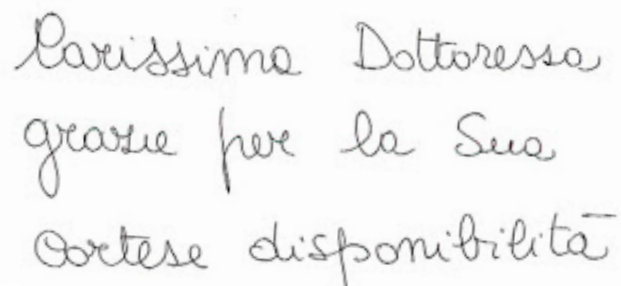 Carissima Dottoressa
grazie per la Sua
cortese disponibilità